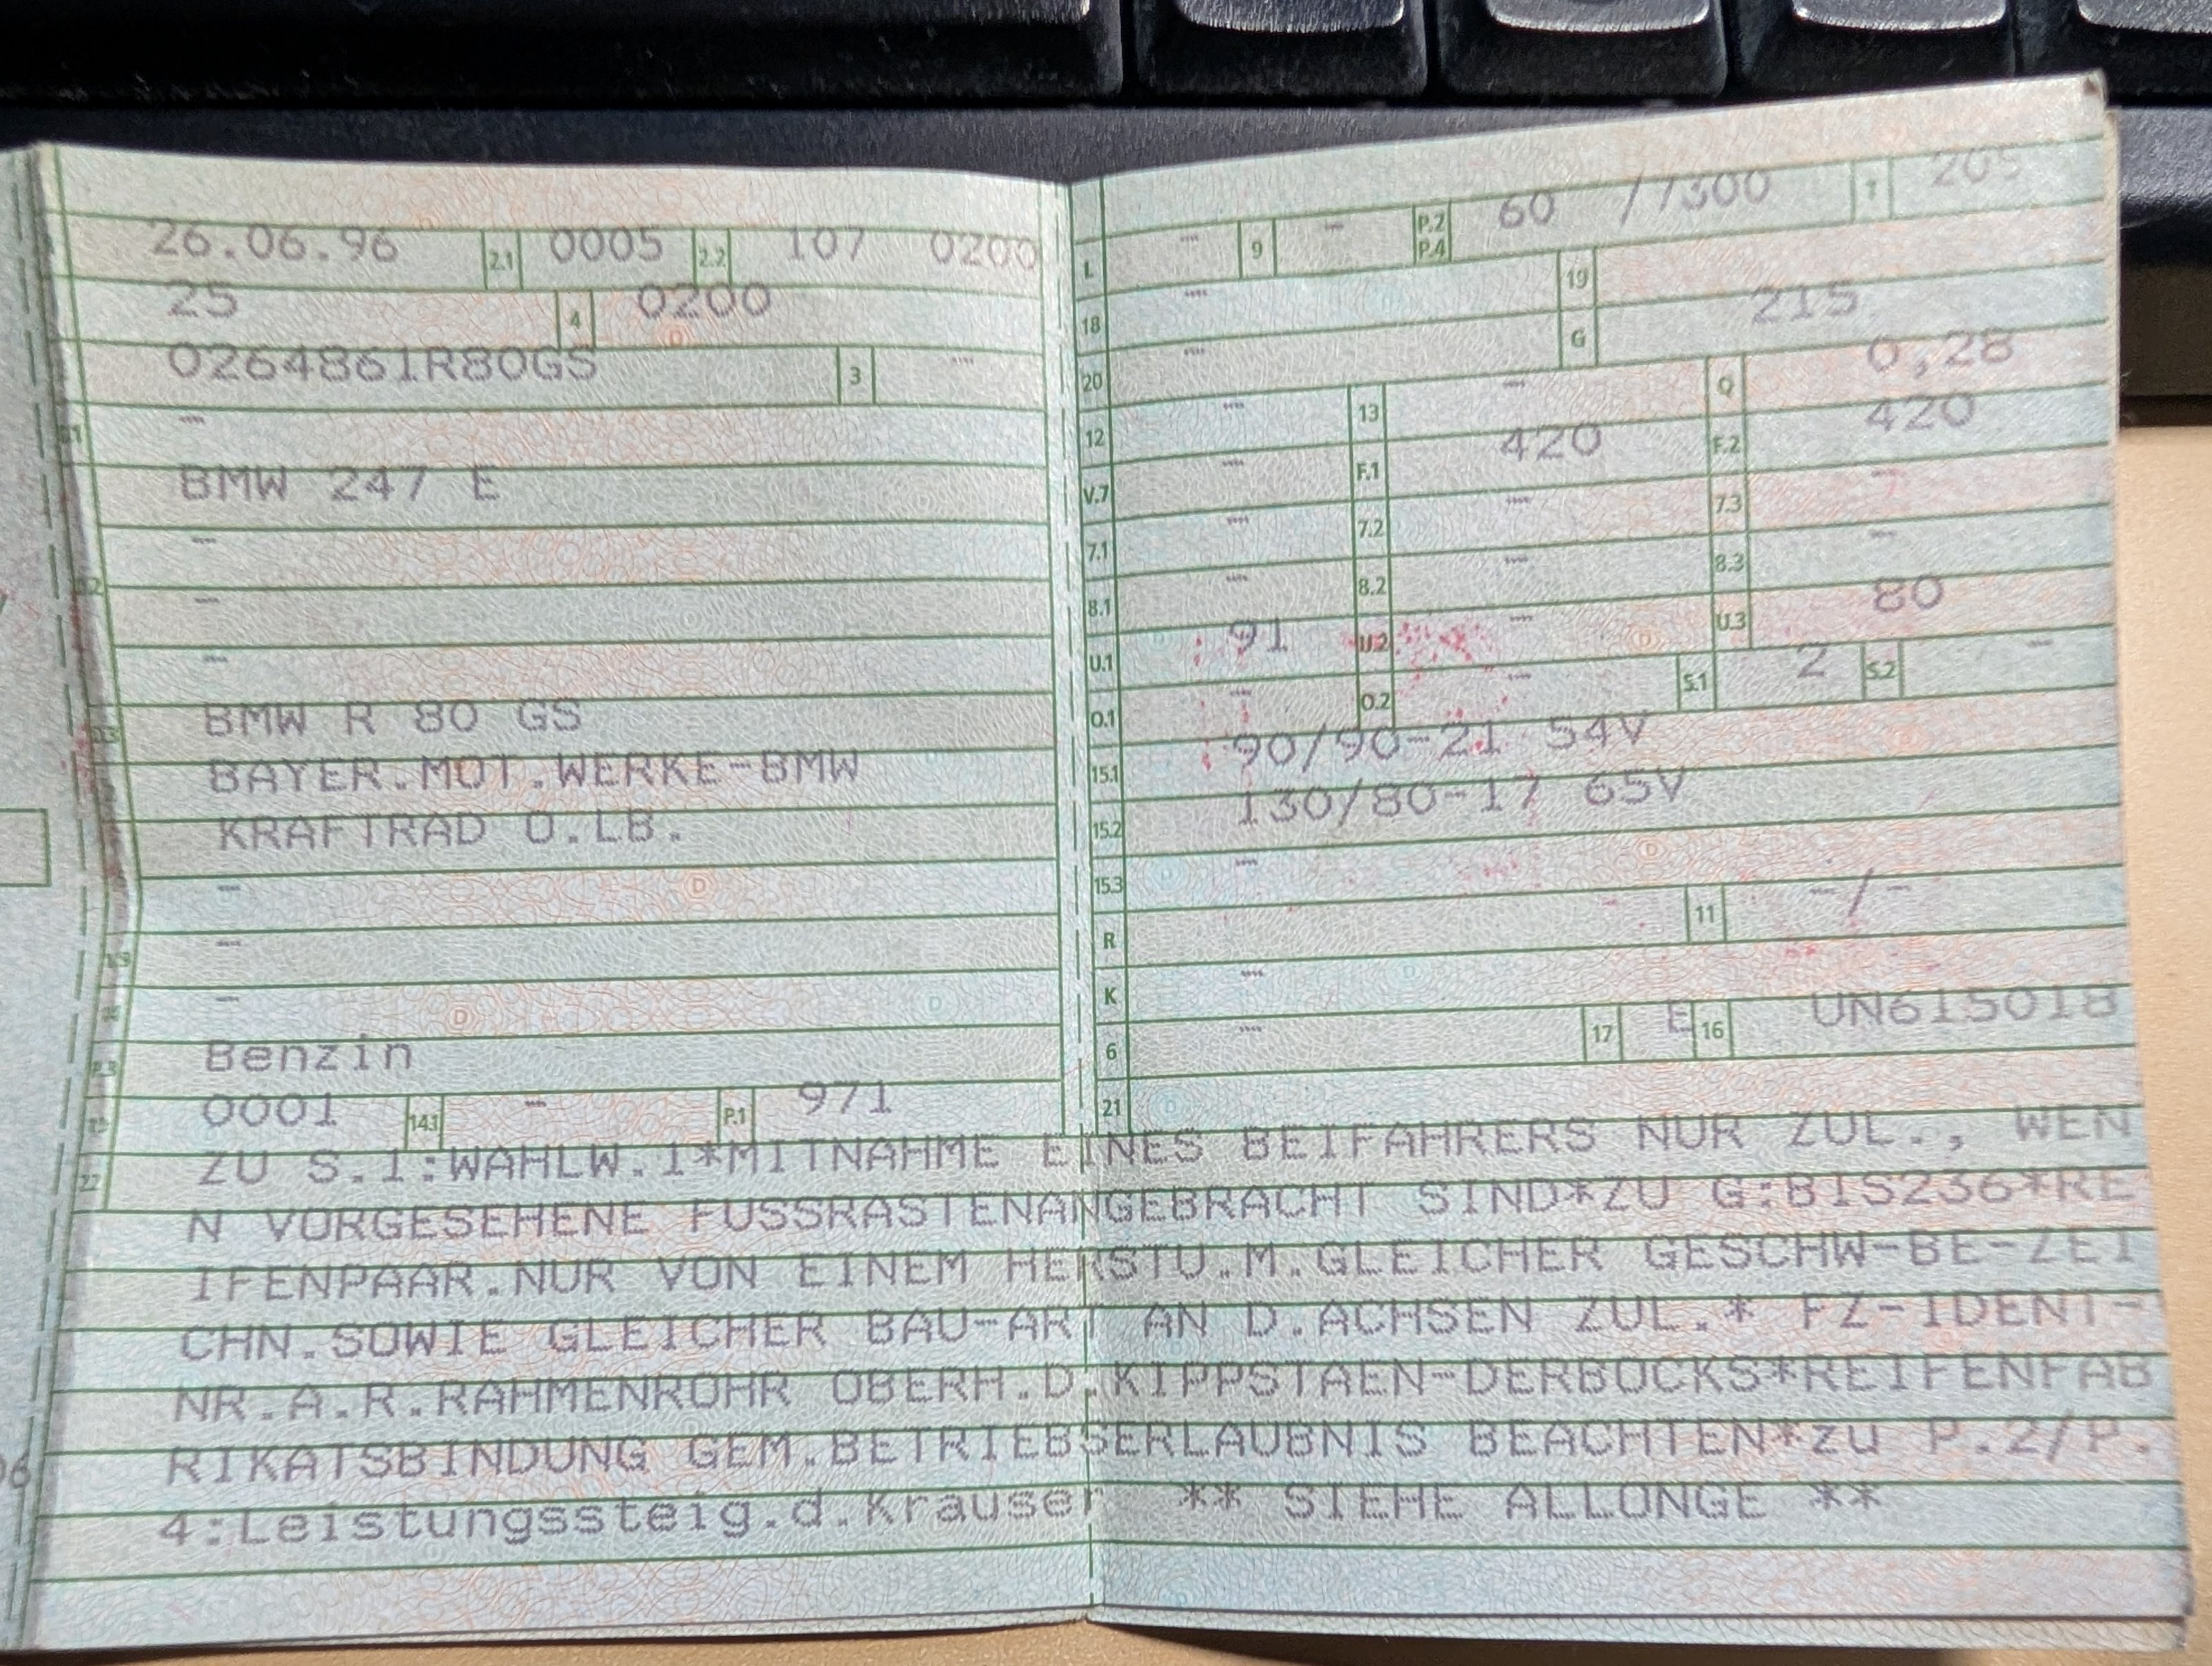 26.06.96 2.1 0005 2.2 107 0200
25 4 0200
0264861R80GS 3 -
-
BMW 247 E
-
-
-
BMW R 80 GS
BAYER.MOT.WERKE-BMW
KRAFTRAD O.LB.
-
-
-
Benzin
0001 14.1 - P.1 971
L - 9 - P.2 P.4 60 /7300 T 205
18 - 19
20 - G 215
12 - 13 - Q 0,28
V.7 - F.1 420 F.2 420
7.1 - 7.2 - 7.3 -
8.1 - 8.2 - 8.3 -
U.1 91 U.2 - U.3 80
O.1 - O.2 - S.1 2 S.2 -
15.1 90/90-21 54V
15.2 130/80-17 65V
15.3 -
R 11 -/-
K -
6 - 17 E 16 UN615018
21
22 ZU S.1:WAHLW.1*MITNAHME EINES BEIFAHRERS NUR ZUL., WEN
N VORGESEHENE FUSSRASTENANGEBRACHT SIND*ZU G:BIS236*RE
IFENPAAR.NUR VON EINEM HERSTU.M.GLEICHER GESCHW-BE-ZEI
CHN.SOWIE GLEICHER BAU-ART AN D.ACHSEN ZUL.* FZ-IDENT-
NR.A.R.RAHMENROHR OBERH.D.KIPPSTAEN-DERBOCKS*REIFENFAB
RIKATSBINDUNG GEM.BETRIEBSERLAUBNIS BEACHTEN*zu P.2/P.
4:Leistungssteig.d.Krauser ** SIEHE ALLONGE **